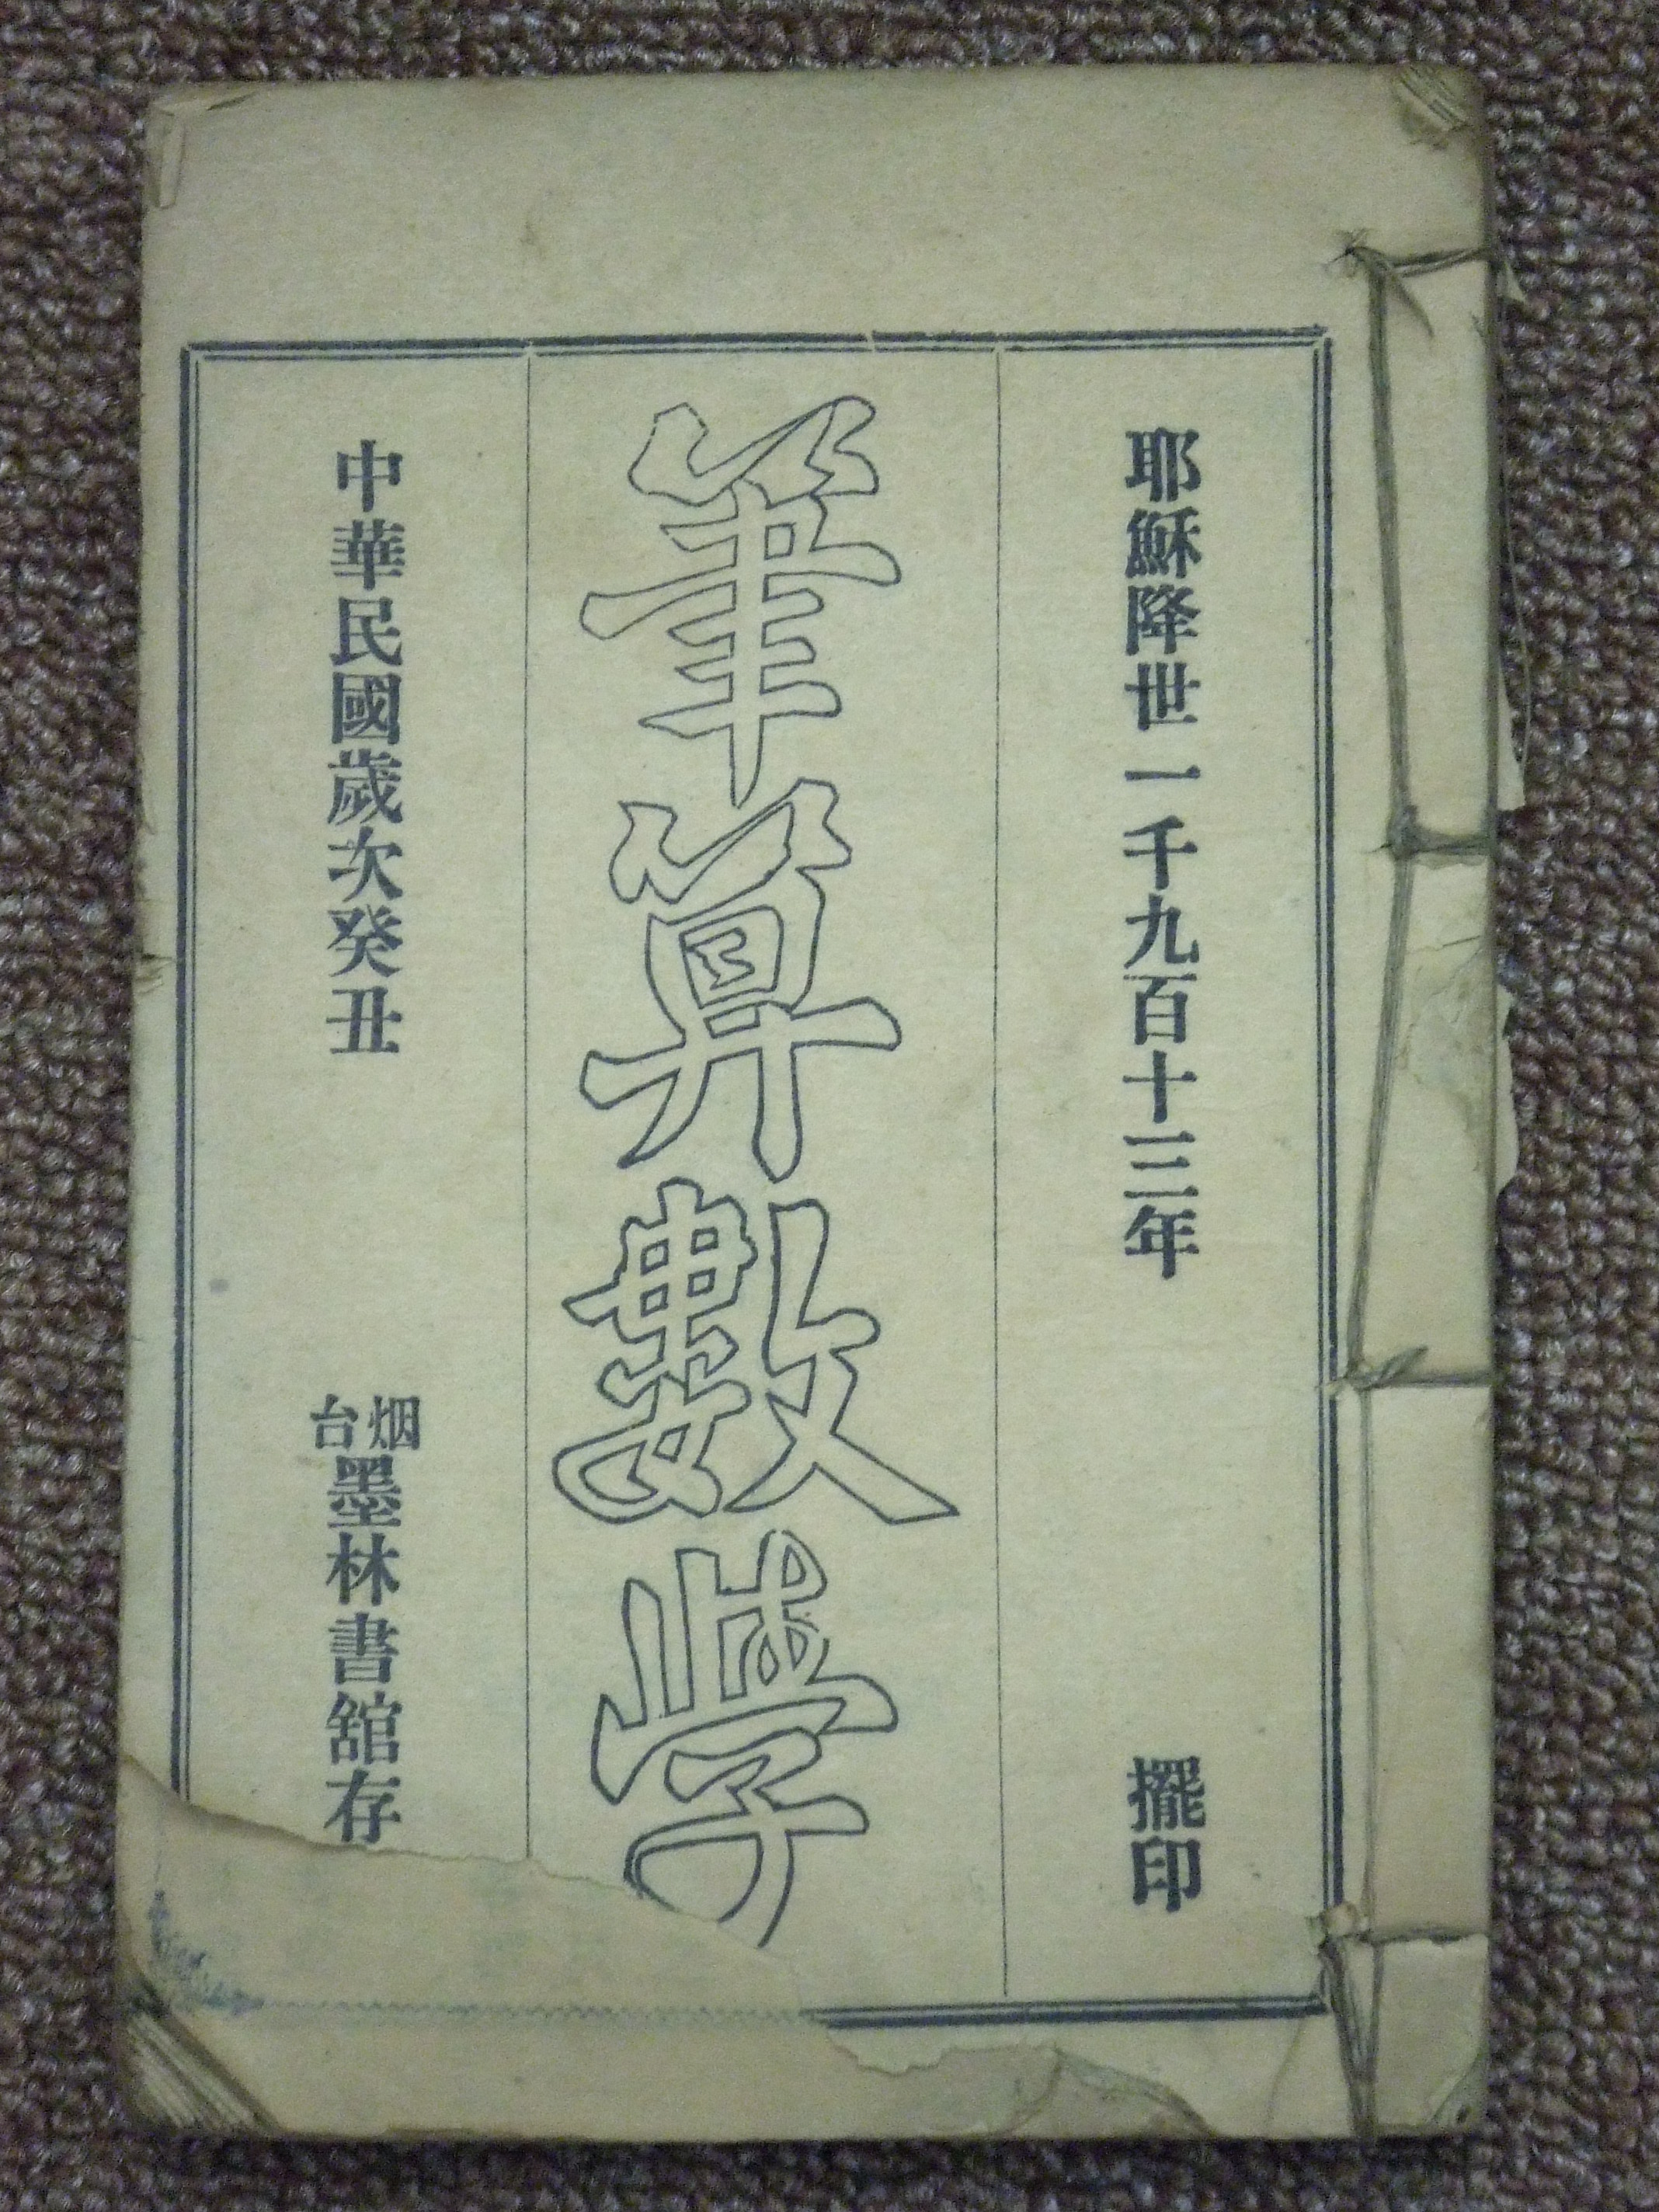 耶穌降世一千九百十三年 擺印
筆算數學
中華民國歲次癸丑 烟台墨林書舘存